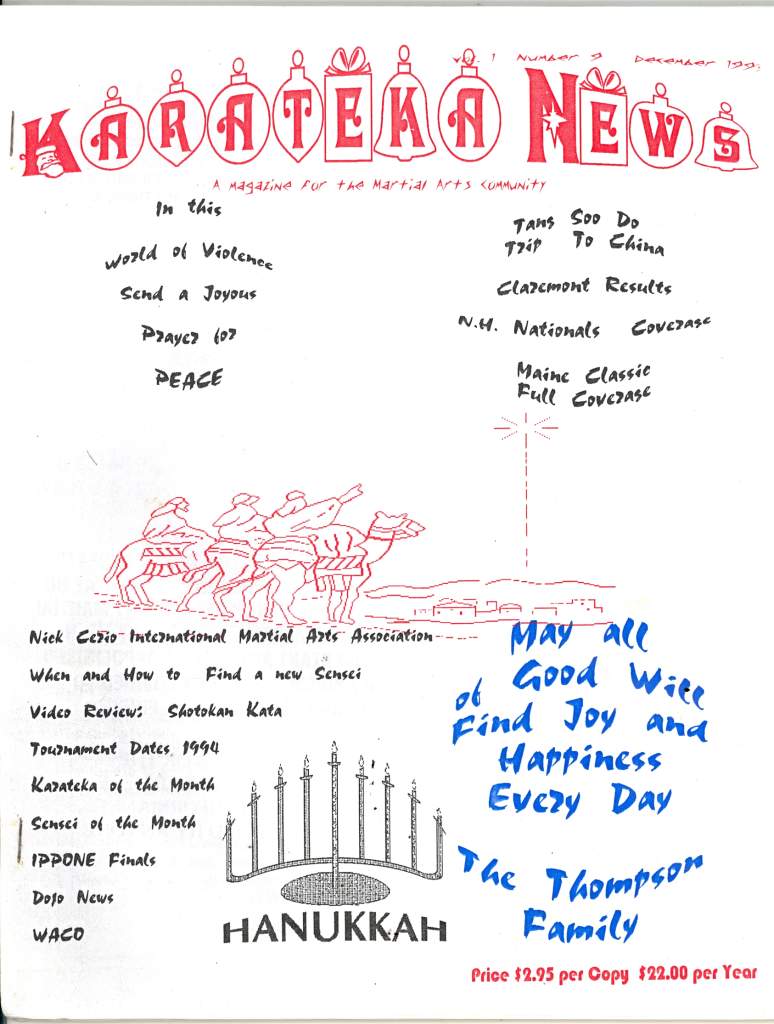 Vol. 1 Number 9 December 199
KARATEKA NEWS
A Magazine for the Martial Arts Community
In this
World of Violence
Send a Joyous
Prayer for
PEACE
Tang Soo Do
Trip To China
Claremont Results
N.H. Nationals Coverage
Maine Classic
Full Coverage
Nick Cerio International Martial Arts Association
When and How to Find a new Sensei
Video Review: Shotokan Kata
Tournament Dates 1994
Karateka of the Month
Sensei of the Month
IPPONE Finals
Dojo News
WACO
HANUKKAH
May all
of Good Will
Find Joy and
Happiness
Every Day
The Thompson
Family
Price $2.95 per Copy $22.00 per Year